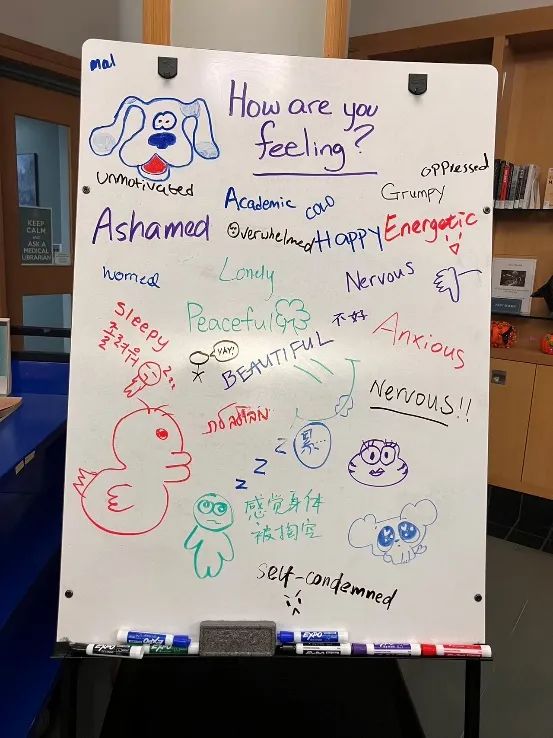 mal
How are you
feeling?
oppressed
unmotivated
Academic
cold
Grumpy
Ashamed
Overwhelmed
Happy
Energetic
worried
Lonely
Nervous
Sleepy
Peaceful
不好
Anxious
YAY!
BEAUTIFUL
Nervous!!
z
z
z
累...
感觉身体
被掏空
self-condemned
KEEP
CALM
AND
ASK A
MEDICAL
LIBRARIAN
EXPO
EXPO
EXPO
EXPO
EXPO